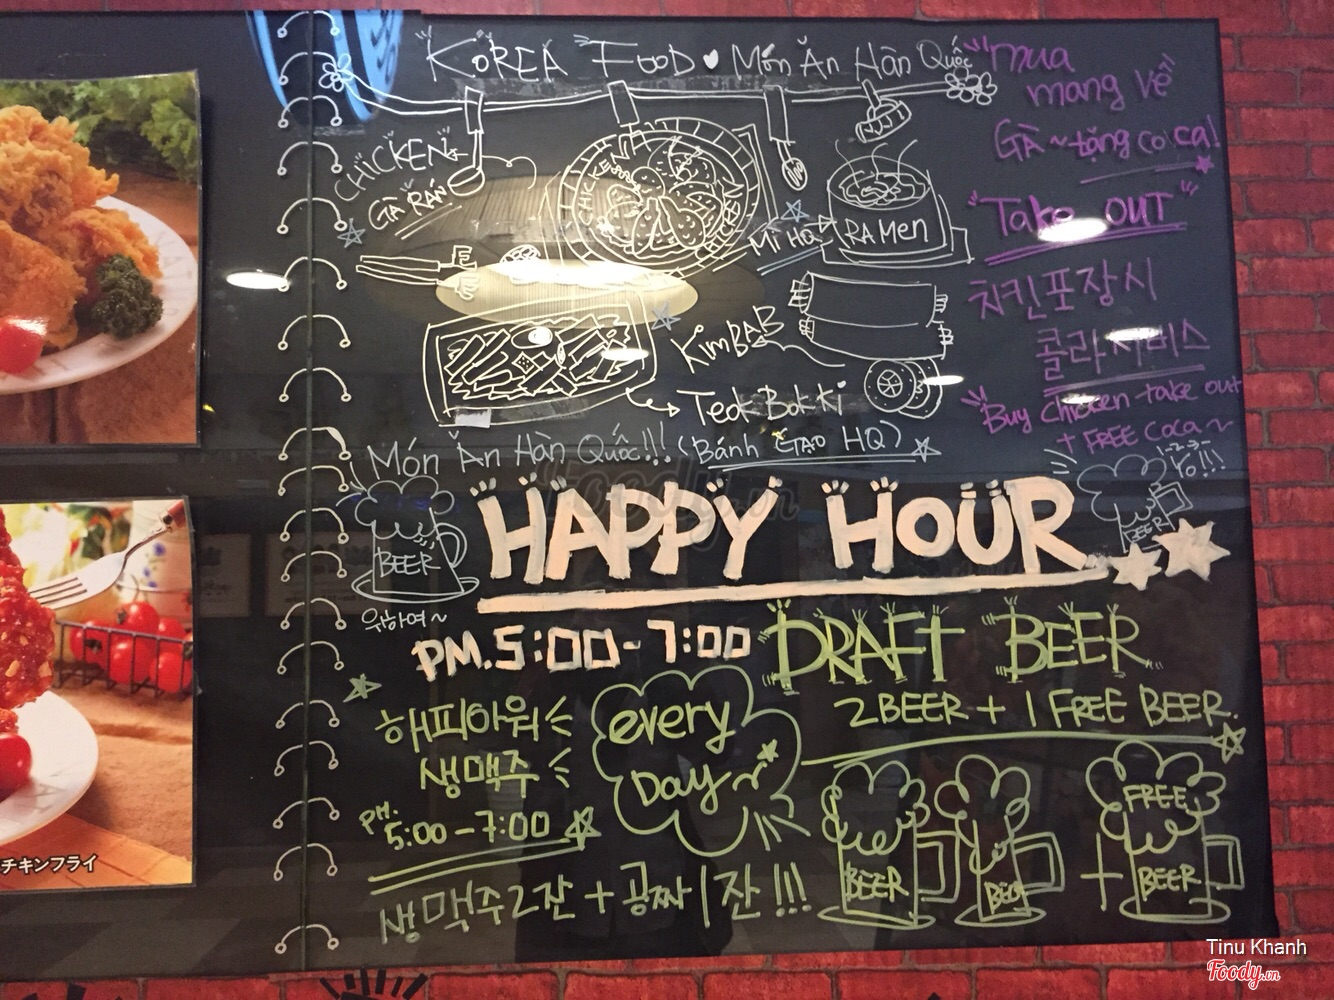 KOREA FOOD ♥ Món Ăn Hàn Quốc
"mua
mang về"
GÀ ~ tặng co ca!
CHICKEN
GÀ RÁN
CHICKEN
MÌ HQ
RAMEN
"Take OUT"
치킨포장시
콜라서비스
"Buy Chicken take out
+ FREE coca ~
KimBAB
TeokBokki
(Bánh GẠO HQ)
Món Ăn Hàn Quốc!!!
1-2-3-
Yo!!!
BEER
BEER
HAPPY HOUR
위하여~
PM.5:00-7:00
DRAFT BEER
2BEER + 1 FREE BEER.
해피아워
생맥주
PM.
5:00-7:00
every
Day~
생맥주2잔 + 공짜 1잔!!!
BEER
BEER
+
FREE
BEER
チキンフライ
Tinu Khanh
Foody.vn